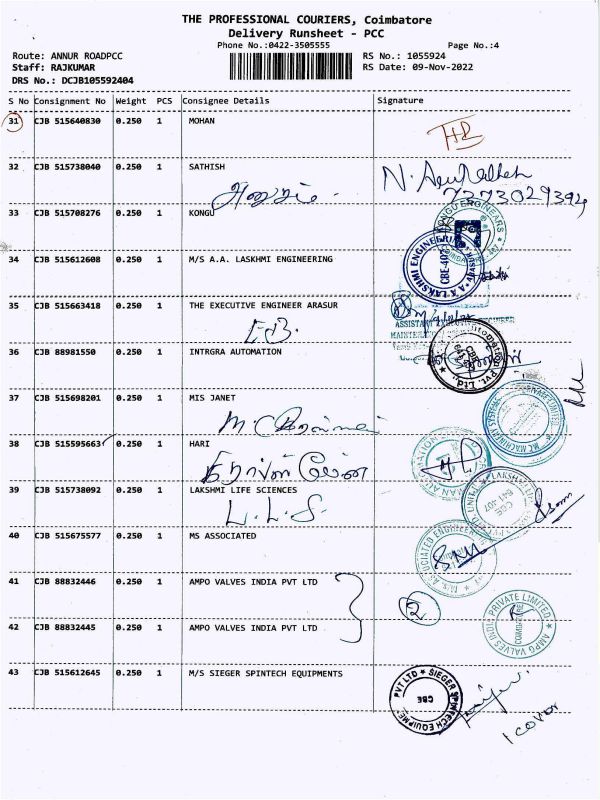 THE PROFESSIONAL COURIERS, Coimbatore
Delivery Runsheet - PCC
Phone No.:0422-3505555 Page No.:4
Route: ANNUR ROADPCC RS No.: 1055924
Staff: RAJKUMAR RS Date: 09-Nov-2022
DRS No.: DCJB105592404
S No Consignment No Weight PCS Consignee Details Signature
31 CJB 515640830 0.250 1 MOHAN
32 CJB 515738040 0.250 1 SATHISH
33 CJB 515708276 0.250 1 KONGU
34 CJB 515612608 0.250 1 M/S A.A. LASKHMI ENGINEERING
35 CJB 515663418 0.250 1 THE EXECUTIVE ENGINEER ARASUR
E.B.
36 CJB 88981550 0.250 1 INTRGRA AUTOMATION
37 CJB 515698201 0.250 1 MIS JANET
38 CJB 515595663 0.250 1 HARI
39 CJB 515738092 0.250 1 LAKSHMI LIFE SCIENCES
L.L.S.
40 CJB 515675577 0.250 1 MS ASSOCIATED
41 CJB 88832446 0.250 1 AMPO VALVES INDIA PVT LTD
2
42 CJB 88832445 0.250 1 AMPO VALVES INDIA PVT LTD
AMPO VALVES INDIA PRIVATE LIMITED
43 CJB 515612645 0.250 1 M/S SIEGER SPINTECH EQUIPMENTS
SIEGER SPINTECH EQUIPMENTS PVT LTD
CBE
1 cover